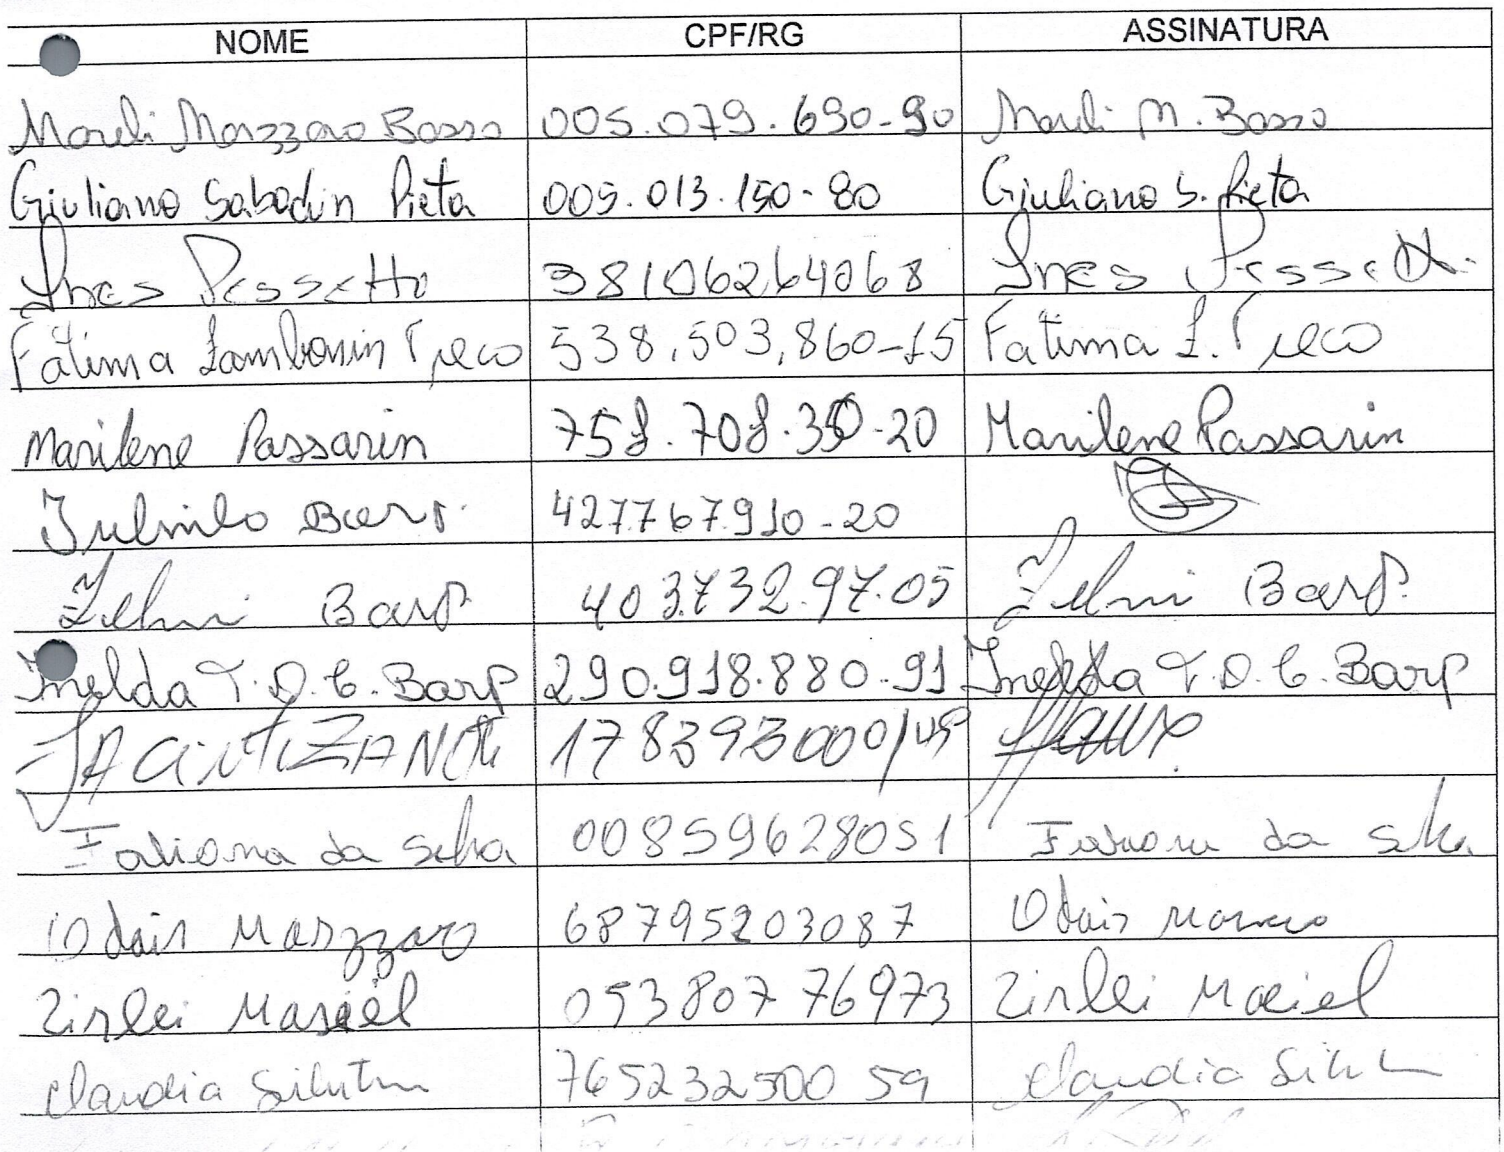 NOME CPF/RG ASSINATURA
Marli Mazzaro Basso 005.079.690-90 Marli M. Basso
Giuliano Sabadin Pieta 005.013.150-80 Giuliano S. Pieta
Ines Pessetto 38106264068 Ines
Fátima Zambonin Treco 538,503,860-15 Fatima Z. Treco
Marilene Passarin 758.708.350-20 Marilene Passarin
427767.910-20
Zelmi Barp 403.732.97.05 Zelmi Barp.
Inelda T.D.C. Barp 290.918.880-91 Inelda T.D.C. Barp
Fabiana da Silva 00859628051 Fabiana da Silva
Odair Mazzaro 68795203087 Odair
Zirlei Maciel 05380776973 Zirlei Maciel
Claudia 76523250059 Claudia